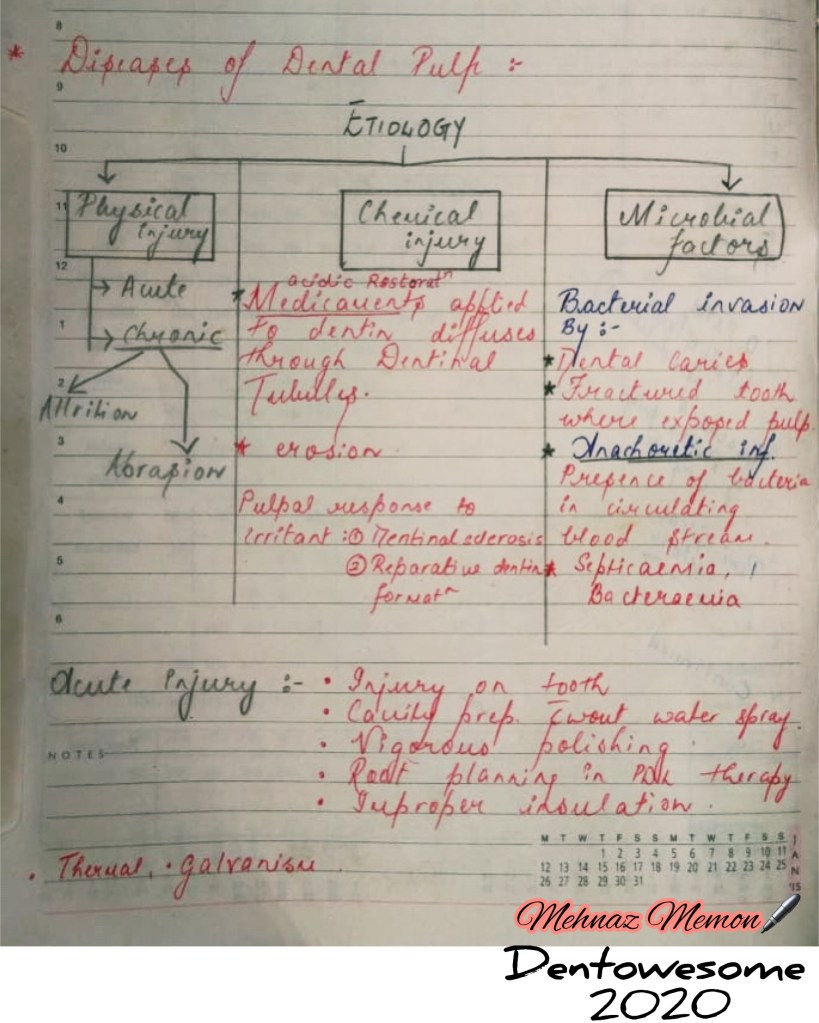 8
* Diseases of Dental Pulp :-
9
ETIOLOGY
10
11
Physical
injury
→ Acute
→ Chronic
Attrition
Abrasion
Chemical
injury
acidic Restoratn
* Medicaments applied
to dentin diffuses
through Dentinal
Tubules.
* erosion
Pulpal response to
irritant :① Dentinal sclerosis
② Reparative dentin
formatn
Microbial
factors
Bacterial invasion
By :-
* Dental caries
* Fractured tooth
where exposed pulp.
* Anachoretic inf.
Presence of bacteria
in circulating
blood stream.
* Septicaemia,
Bacteraemia
12
1
2
3
4
5
6
Acute Injury :- • Injury on tooth
• Cavity prep. c̄wout water spray.
• Vigorous polishing.
NOTES
• Root planning in PDL therapy
• Improper insulation.
• Thermal, • Galvanism.
M T W T F S S M T W T F S S
1 2 3 4 5 6 7 8 9 10 11
12 13 14 15 16 17 18 19 20 21 22 23 24 25
26 27 28 29 30 31
JAN
'15
Mehnaz Memon
Dentowesome
2020